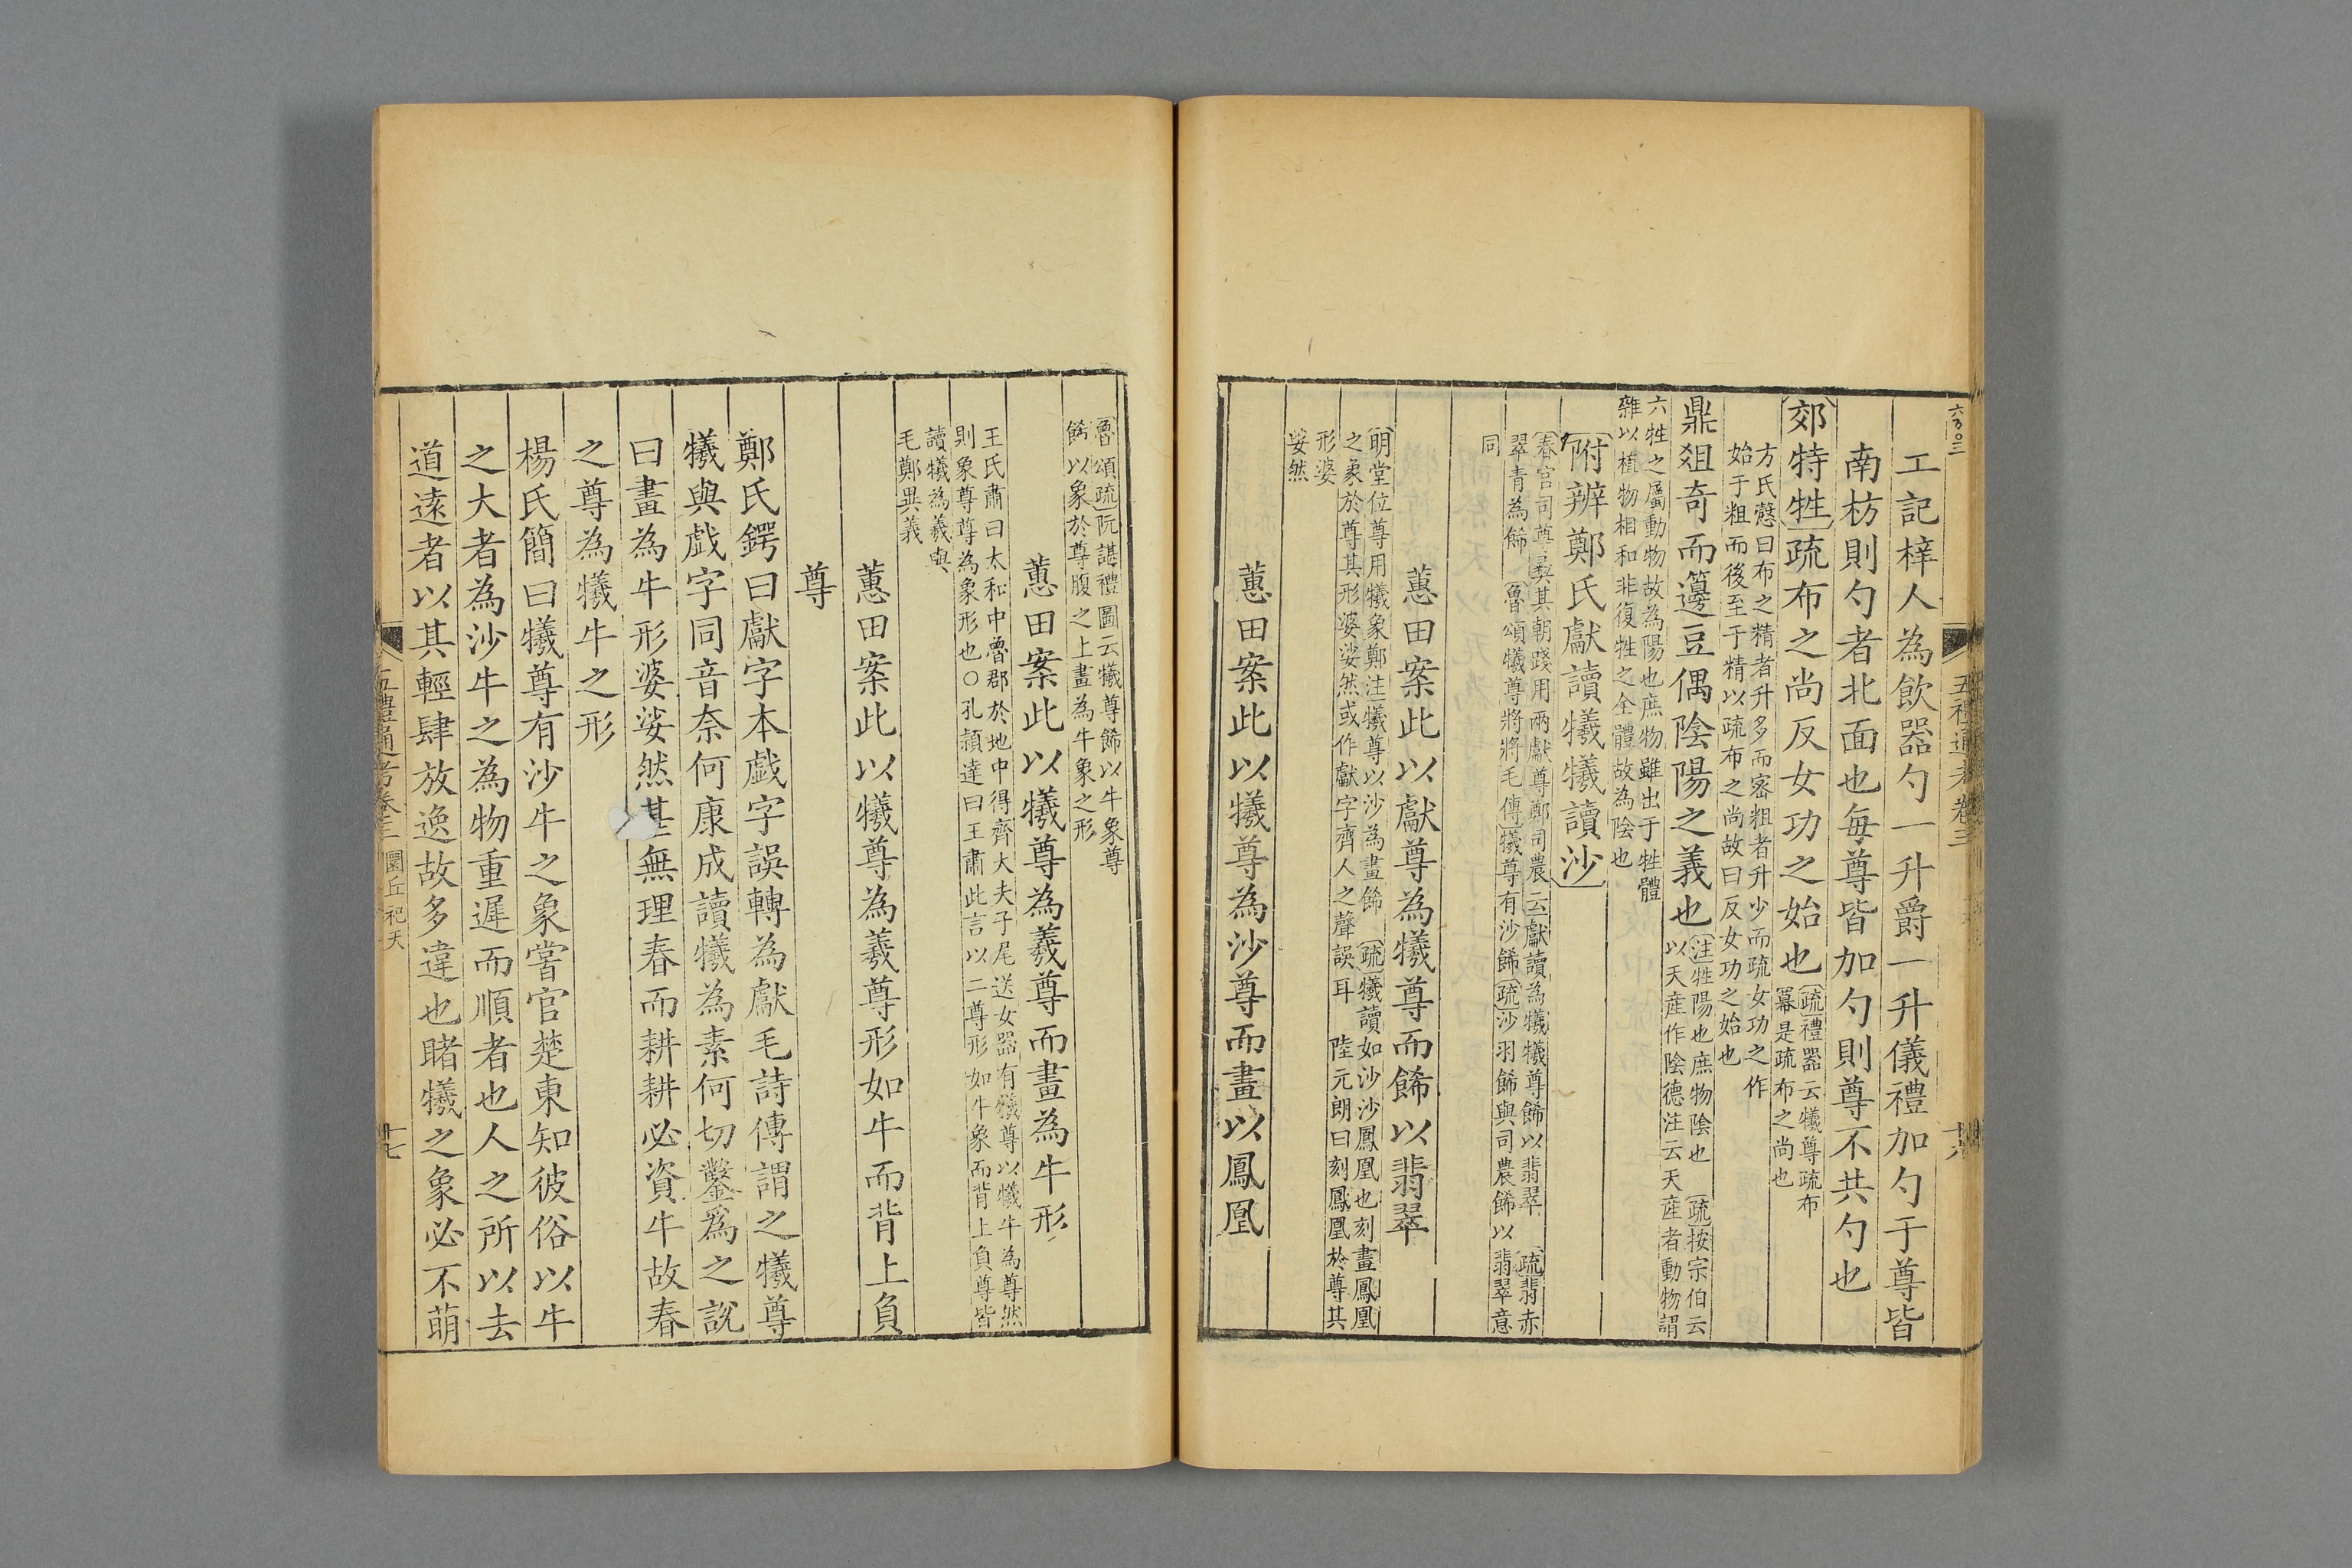 五禮通考卷三
十六
工記梓人為飲器勺一升爵一升儀禮加勺于尊皆
南枋則勺者北面也每尊皆加勺則尊不共勺也
郊特牲疏布之尚反女功之始也疏禮器云犧尊疏布
冪是疏布之尚也
方氏慤曰布之精者升多而密粗者升少而疏女功之作
始于粗而後至于精以疏布之尚故曰反女功之始也
鼎俎奇而籩豆偶陰陽之義也注牲陽也庶物陰也 疏按宗伯云
以天產作陰德注云天產者動物謂
六牲之屬動物故為陽也庶物雖出于牲體
雜以植物相和非復牲之全體故為陰也
附辨鄭氏獻讀犧犧讀沙
春官司尊彝其朝踐用兩獻尊鄭司農云獻讀為犧犧尊飾以翡翠 疏翡赤
翠青為飾 魯頌犧尊將將毛傳犧尊有沙飾疏沙羽飾與司農飾以翡翠意
同
蕙田案此以獻尊為犧尊而飾以翡翠
明堂位尊用犧象鄭注犧尊以沙為畫飾 疏犧讀如沙沙鳳凰也刻畫鳳凰
之象於尊其形婆娑然或作獻字齊人之聲誤耳 陸元朗曰刻鳳凰於尊其
形婆
娑然
蕙田案此以犧尊為沙尊而畫以鳳凰
魯頌疏阮諶禮圖云犧尊飾以牛象尊
飾以象於尊腹之上畫為牛象之形
蕙田案此以犧尊為羲尊而畫為牛形
王氏肅曰太和中魯郡於地中得齊大夫子尾送女器有犧尊以犧牛為尊然
則象尊尊為象形也○孔穎達曰王肅此言以二尊形如牛象而背上負尊皆
讀犧為羲與
毛鄭異義
蕙田案此以犧尊為羲尊形如牛而背上負
尊
鄭氏鍔曰獻字本戲字誤轉為獻毛詩傳謂之犧尊
犧與戲字同音奈何康成讀犧為素何切鑿為之說
曰畫為牛形婆娑然甚無理春而耕耕必資牛故春
之尊為犧牛之形
楊氏簡曰犧尊有沙牛之象嘗官楚東知彼俗以牛
之大者為沙牛之為物重遲而順者也人之所以去
道遠者以其輕肆放逸故多違也睹犧之象必不萌
五禮通考卷三 圜丘祀天
十七